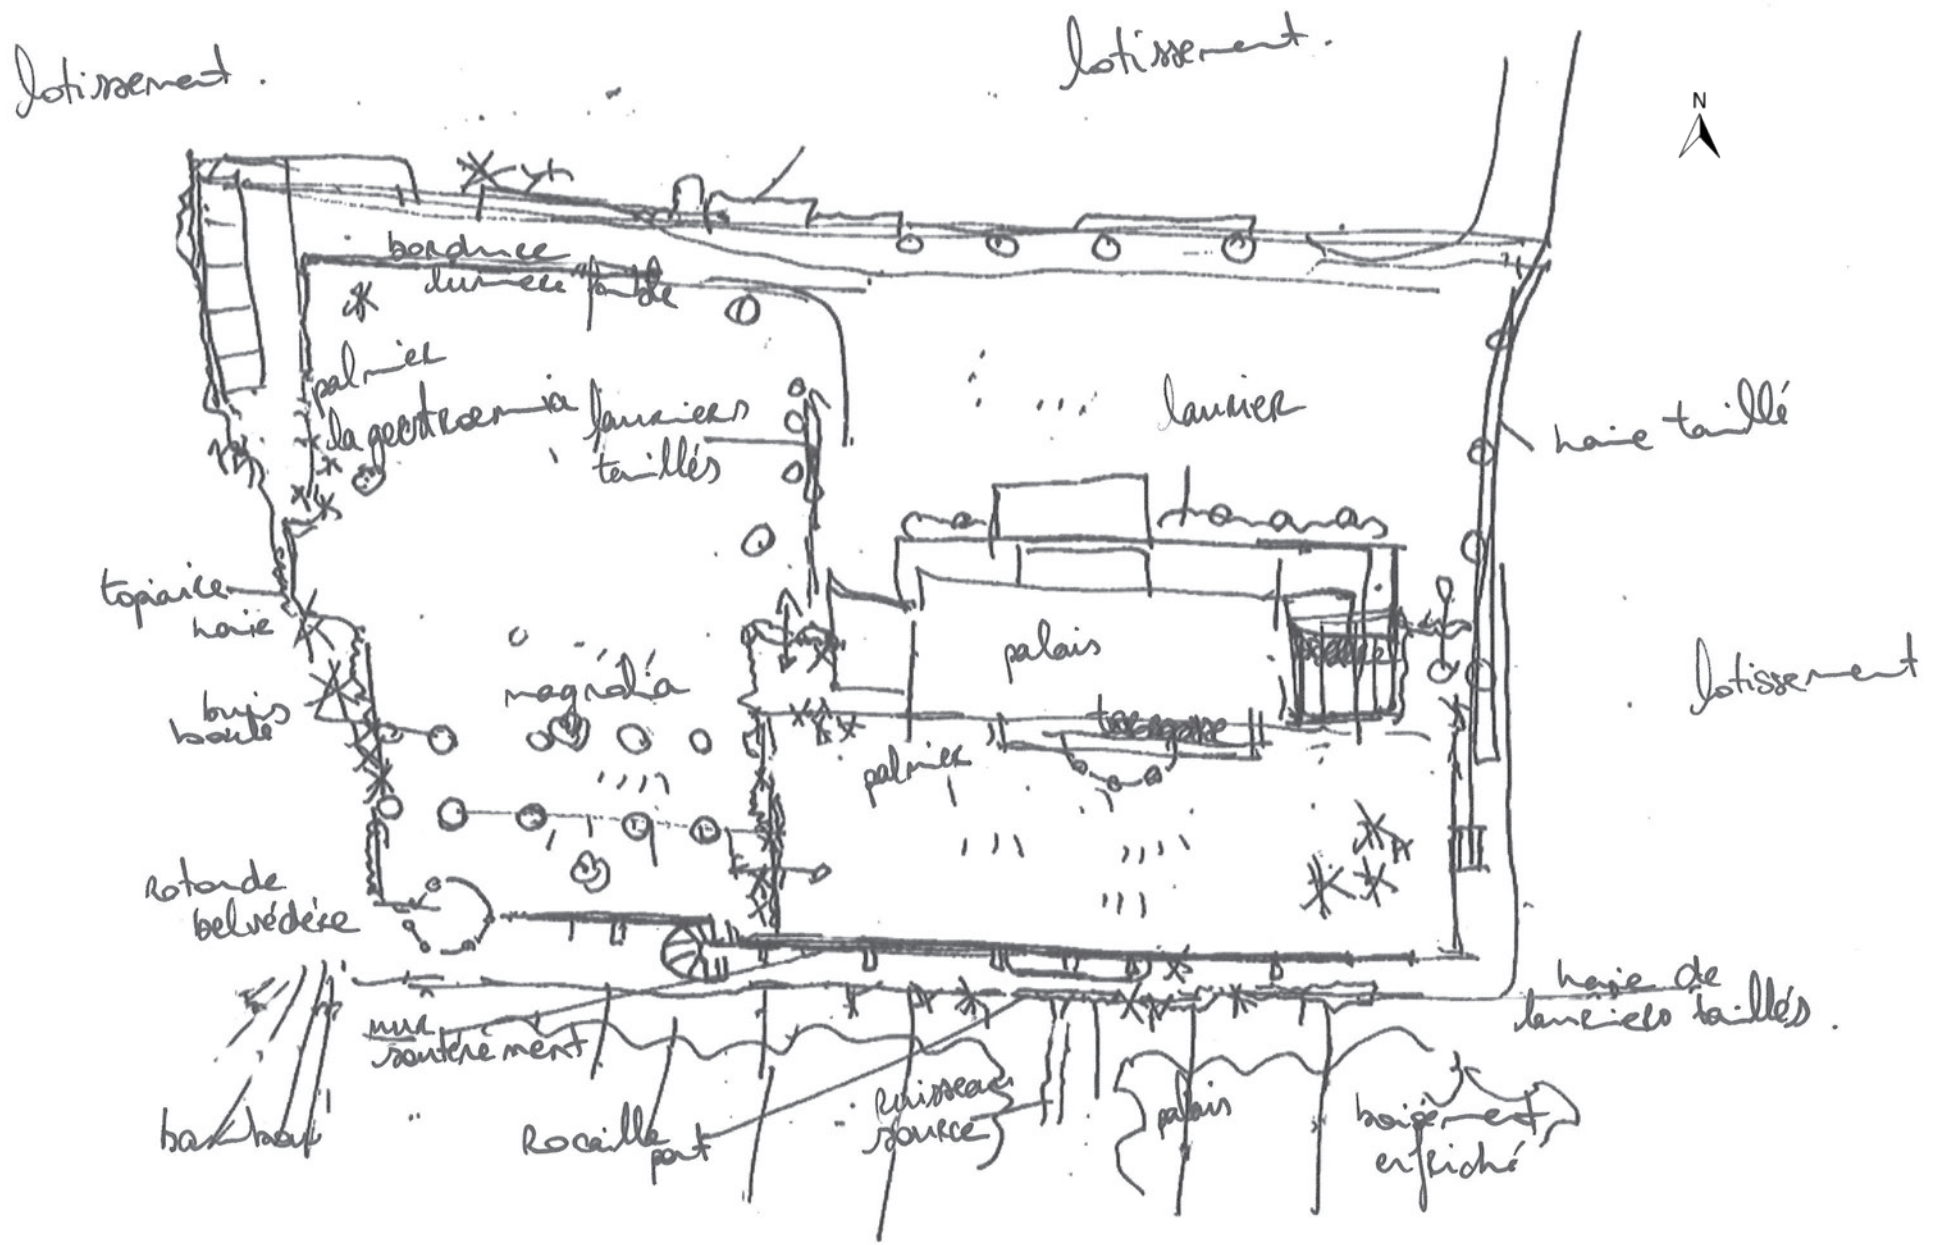 lotissement.
lotissement.
N
bordure
palmier
lagerstroemia
lauriers
taillés
laurier
haie taillé
topiaire
haie
palais
lotissement
magnolia
buis
boule
terrasse
palmier
Rotonde
belvédère
haie de
lauriers taillés.
mur
soutènement
bambou
Rocaille
pont
Ruisseau
source
palais
boisement
enfriché